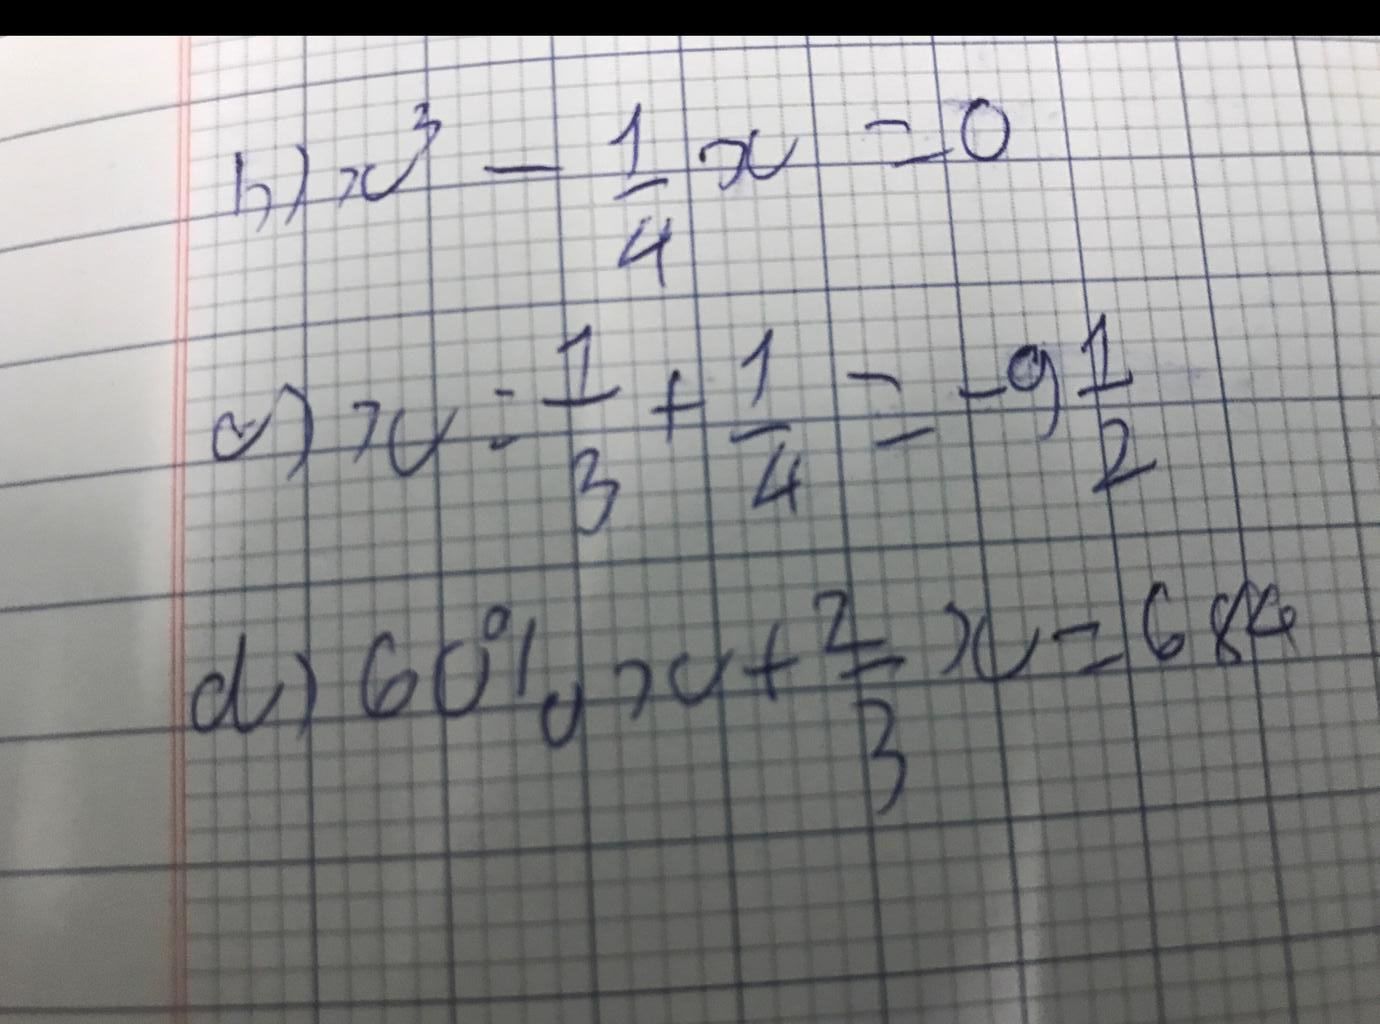 b) x³ - 1/4 x = 0
c) x = 1/3 + 1/4 = -9 1/2
d) 60% x + 2/3 x = 684